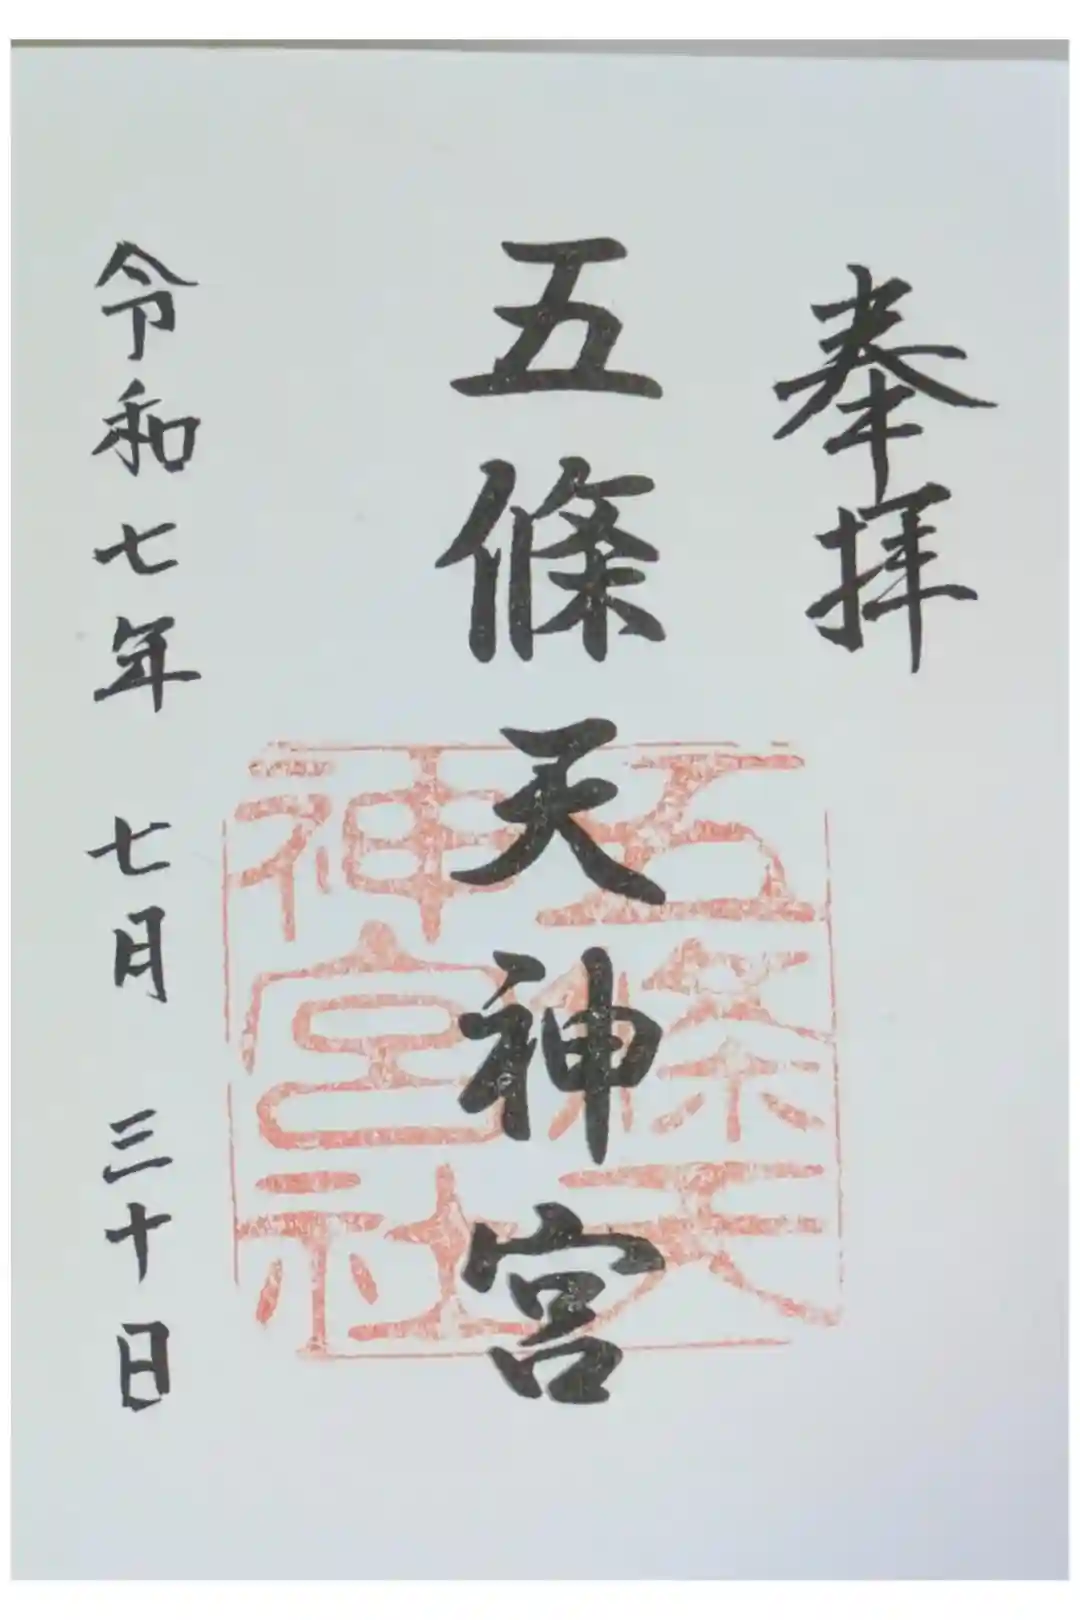 奉拝
五條天神宮
五條天神宮社
令和七年 七月 三十日